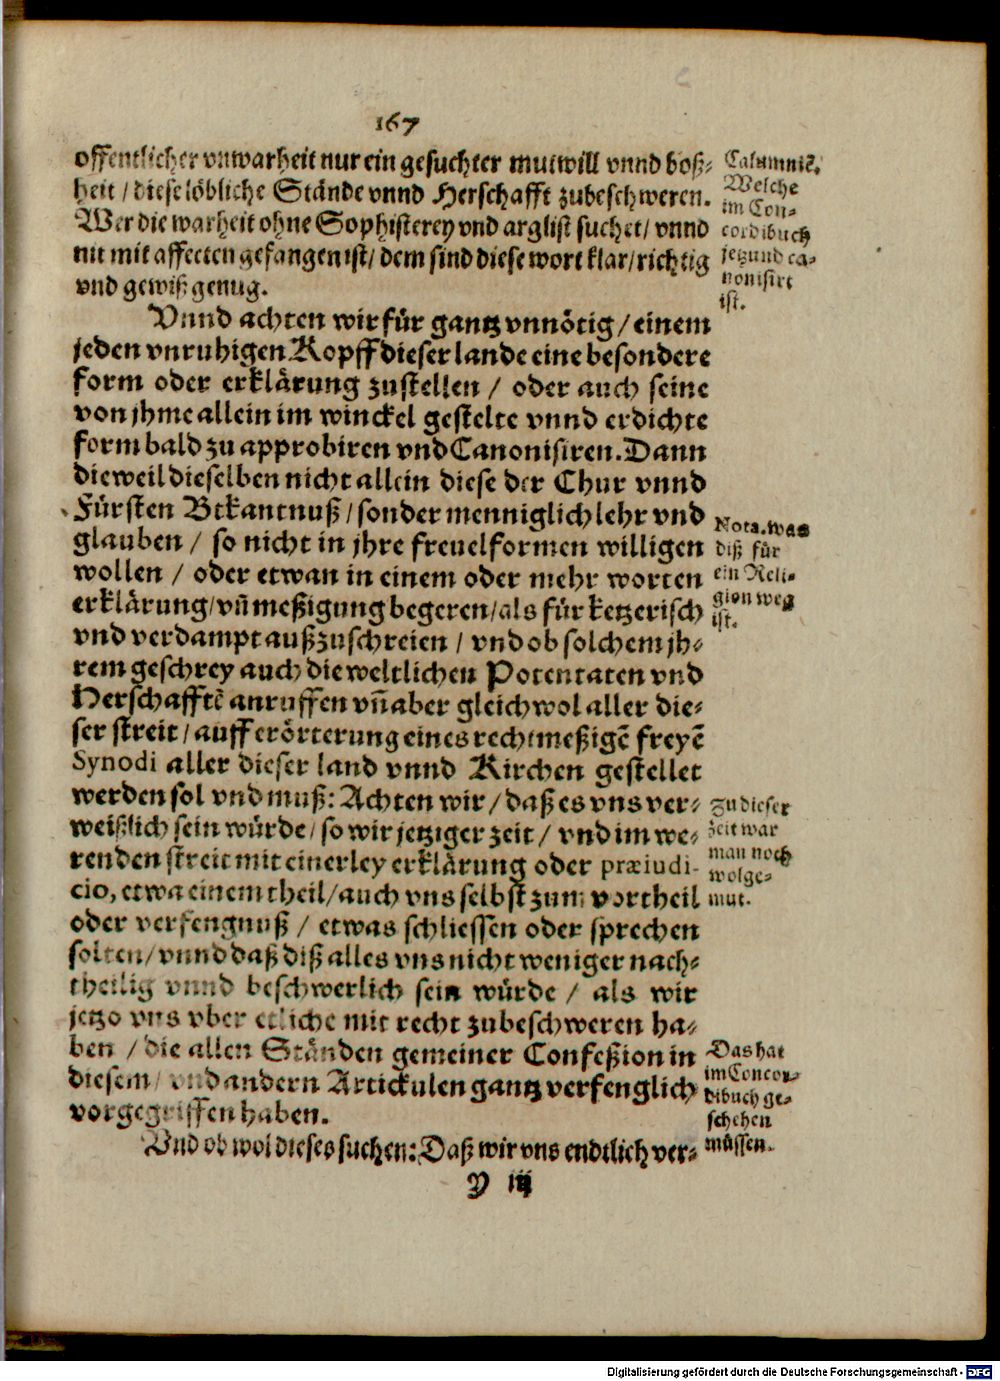 167
offentlicher vnwarheit nur ein gesuchter mutwill vnnd boß-
heit / diese löbliche Stände vnnd Herschafft zubeschweren.
Wer die warheit ohne Sophisterey vnd arglist suchet / vnnd
nit mit affecten gefangen ist / dem sind diese wort klar / richtig
vnd gewiß genug.
Calumniẽ.
Welche
im Con-
cordibuch
jetzund ca-
nonisirt
ist.
Vnnd achten wir für gantz vnnötig / einem
jeden vnruhigen Kopff dieser lande eine besondere
form oder erklärung zustellen / oder auch seine
von jhme allein im winckel gestelte vnnd erdichte
form bald zu approbiren vnd Canonisiren. Dann
dieweil dieselben nicht allein diese der Chur vnnd
Fürsten Bekantnuß / sonder menniglich lehr vnd
glauben / so nicht in jhre freuelformen willigen
wollen / oder etwan in einem oder mehr worten
erklärung / vñ meßigung begeren / als für ketzerisch
vnd verdampt außzuschreien / vnd ob solchem jh-
rem geschrey auch die weltlichen Potentaten vnd
Herschafftẽ anruffen vñ aber gleichwol aller die-
ser streit / auff erörterung eines rechtmeßigẽ freyẽ
Synodi aller dieser land vnnd Kirchen gestellet
werden sol vnd muß: Achten wir / daß es vns ver-
weißlich sein würde / so wir jetziger zeit / vnd im we-
renden streit mit einerley erklärung oder præiudi-
cio, etwa einem theil / auch vns selbst zum vortheil
oder verfengnuß / etwas schliessen oder sprechen
solten / vnnd daß diß alles vns nicht weniger nach-
theilig vnnd beschwerlich sein würde / als wir
jetzo vns vber etliche mit recht zubeschweren ha-
ben / die allen Ständen gemeiner Confeßion in
diesem / vnd andern Artickulen gantz verfenglich
vorgegriffen haben.
Nota. was
diß für
ein Reli-
gion weg
ist.
Zu dieser
zeit war
man noch
wolge-
mut.
Das hat
im Concor-
dibuch ge-
schehen
müssen.
Vnd ob wol dieses suchen: Daß wir vns endtlich ver-
Y iij
Digitalisierung gefördert durch die Deutsche Forschungsgemeinschaft - DFG